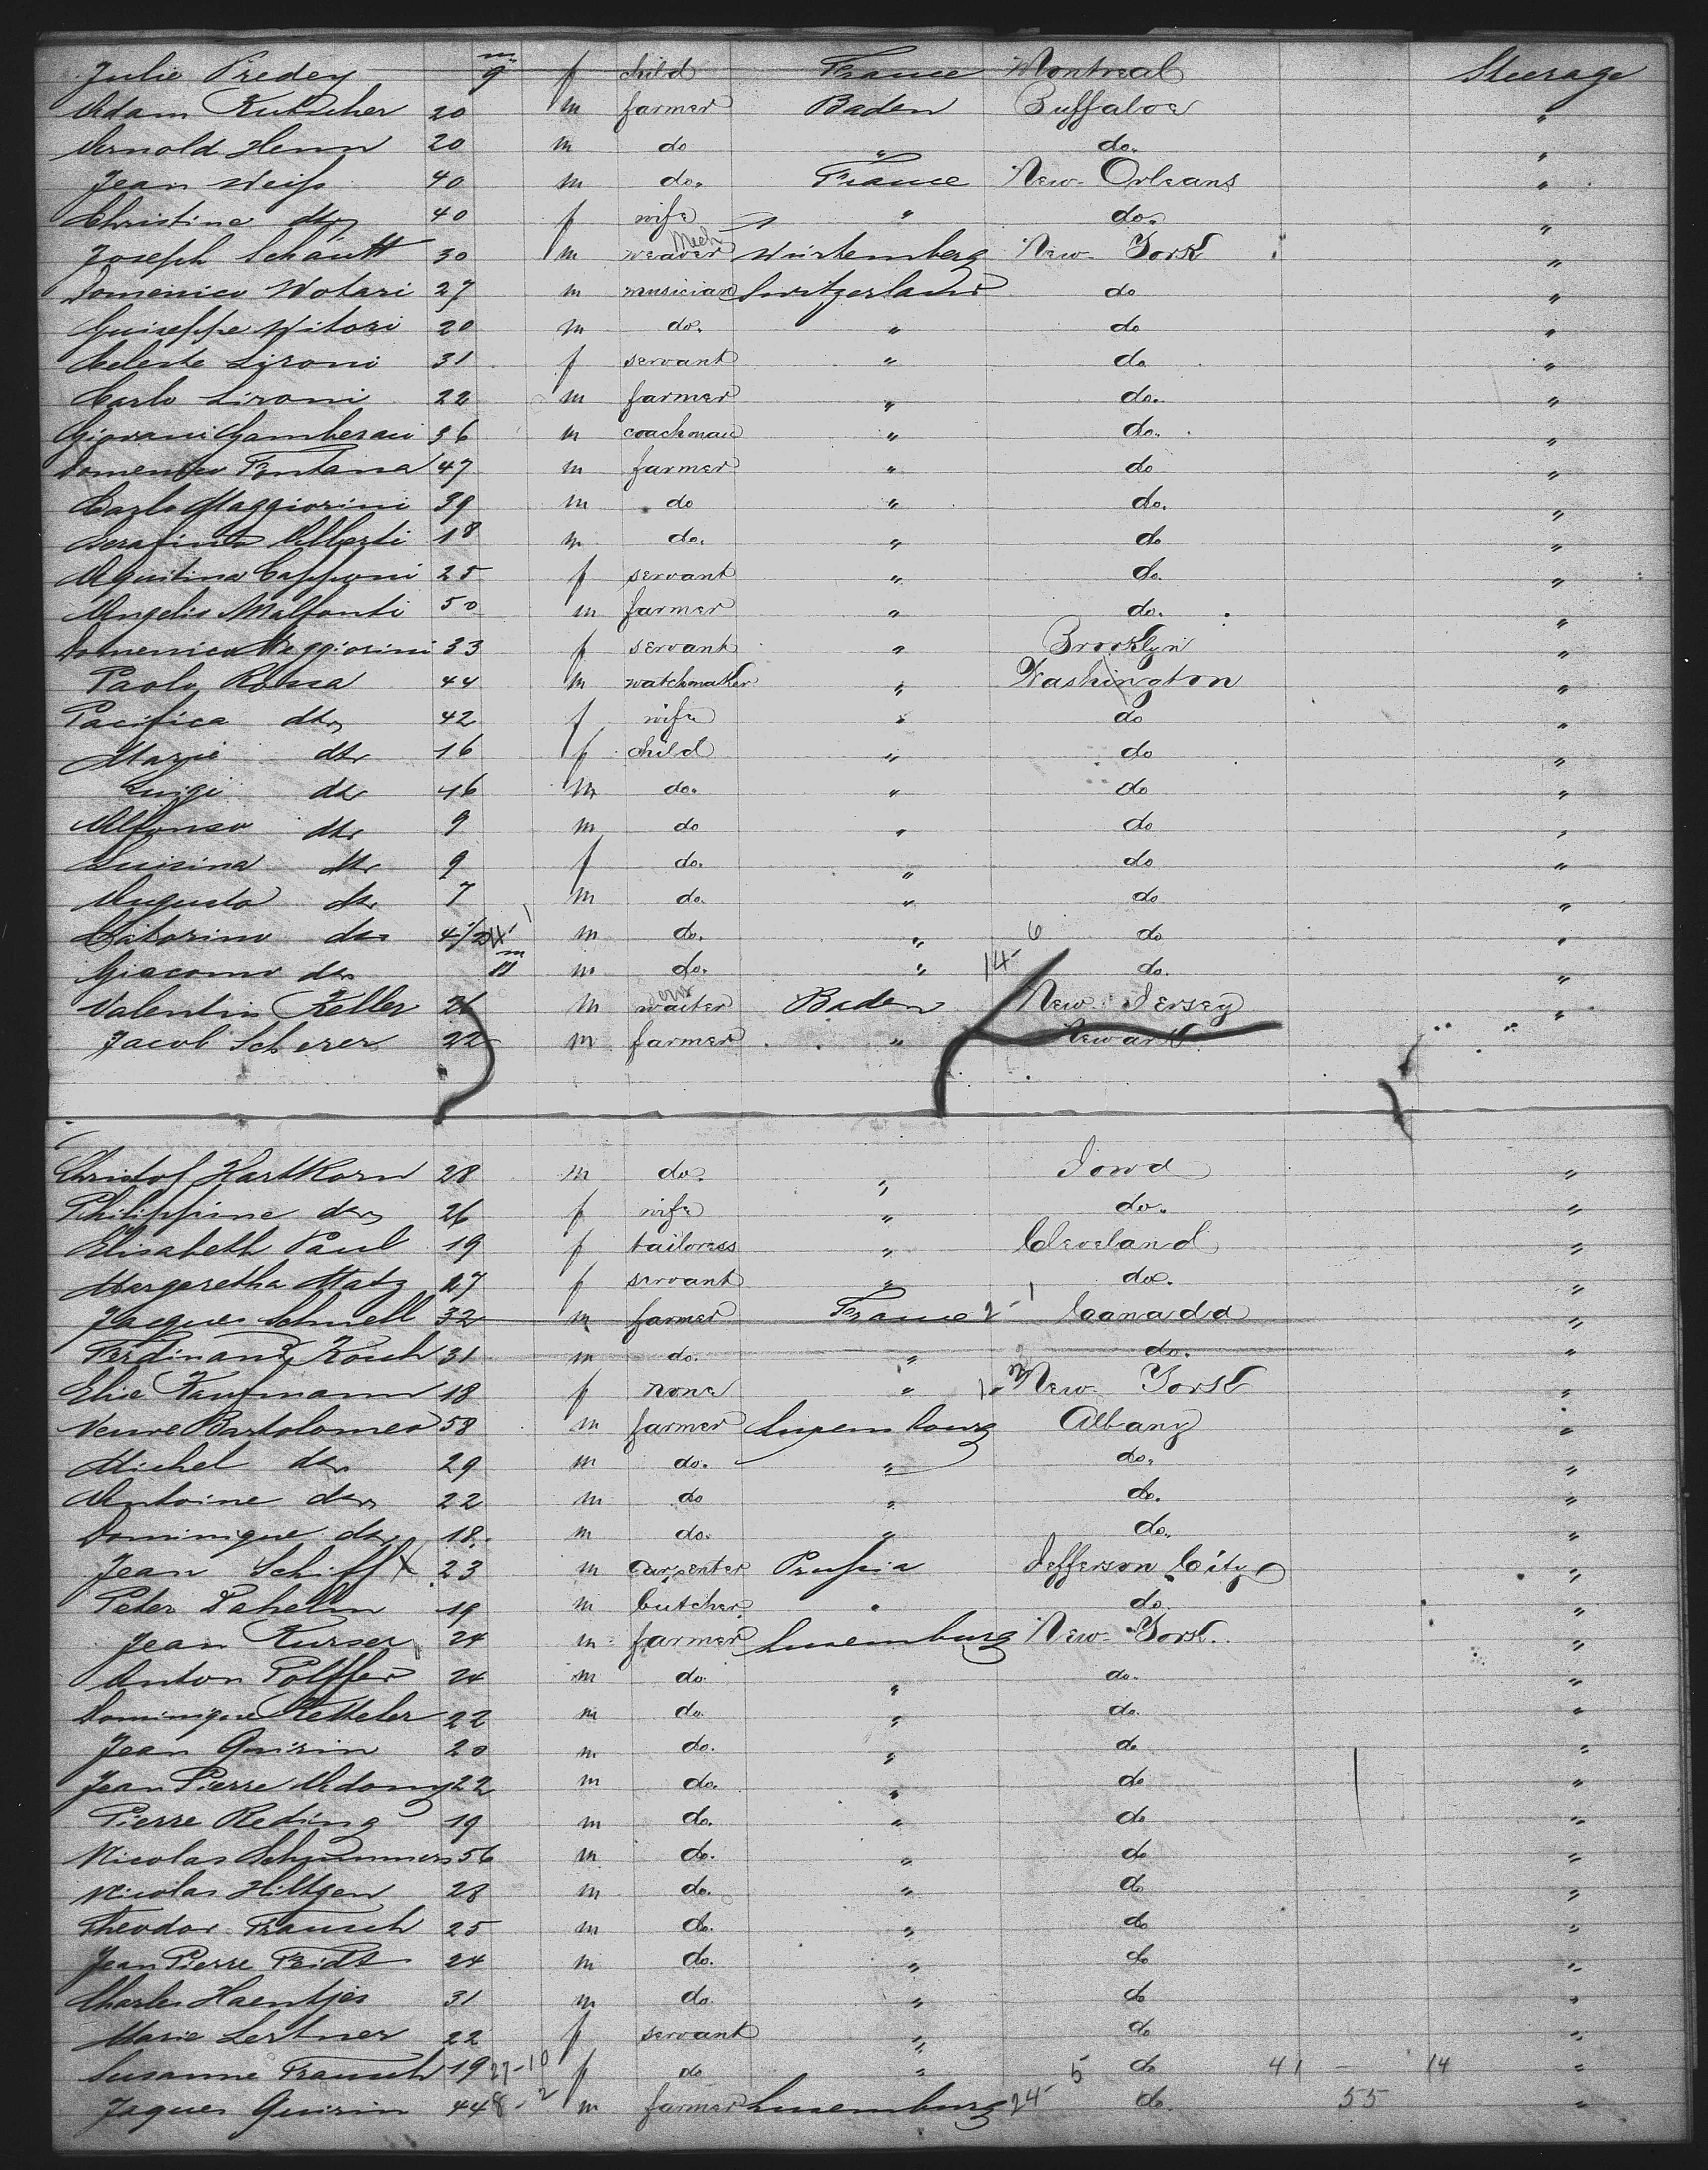 Julie Predey 9 m f child France Montreal Steerage
Adam Kutscher 20 m farmer Baden Buffaloe "
Arnold Henn 20 m do " do. "
Jean Weiß 40 m do. France New-Orleans "
Christine do 40 f wife " do. "
Joseph Schäutt 30 m weaver Mech Würtemberg New-York "
Domenico Wotari 27 m musician Switzerland do "
Guiseppe Witori 20 m do. " do "
Celeste Lironi 31 f servant " do "
Carlo Lironi 22 m farmer " do. "
Giovani Gamberani 36 m coachman " do. "
Domenico Fontana 47 m farmer " do "
Carlo Maggiorini 39 m do " do. "
Serafino Alberti 18 m do. " do "
Agustina Capponi 25 f servant " do. "
Angelio Malfonti 50 m farmer " do. "
Domenica Maggiorini 33 f servant " Brooklyn "
Paolo Rossa 44 m watchmaker " Washington "
Pacifica do 42 f wife " do "
Marie do 16 f child " do "
Luigi do 16 m do. " do "
Alfonso do 9 m do " do "
Luisina do 9 f do. " do "
Augusto do 7 m do. " do "
Vitorino do 4 1/2 m do. " 6 do "
Giacomo do 11 m m do. " 14- do. "
Valentin Keller 26 m waiter Baden New-Jersey "
Jacob Scherer 22 m farmer " Newark "
Christof Hartkorn 28 m do. " Iowa "
Philippine do 26 f wife " do. "
Elisabeth Paul 19 f tailoress " Cleveland "
Margaretha Matz 27 f servant " do. "
Jacques Schnell 32 m farmer France 2-1 Canada "
Ferdinand Kosch 31 m do. " do. "
Elise Kaufmann 18 f none " New-York "
Veuve Bartolomeo 58 m farmer Luxembourg Albany "
Michel do 29 m do. " do. "
Antoine do 22 m do " do. "
Dominique do 18. m do. " do. "
Jean Schiff X 23 m carpenter Prußia Jefferson City "
Peter Pahelin 19 m butcher " do. "
Jean Kurser 24 m farmer Luxemburg New-York. "
Anton Polffer 24 m do. " do. "
Dominique Ketteler 22 m do. " do. "
Jean Quirin 20 m do. " do "
Jean Pierre Adamy 22 m do. " do "
Pierre Reding 19 m do. " do "
Nicolas Schummers 56 m do. " do "
Nicolas Hiltgen 28 m do. " do "
Theodor Frausch 25 m do. " do "
Jean Pierre Feidt 24 m do. " do "
Charles Haentjes 31 m do. " do "
Marie Lertner 22 f servant " do "
Susanne Frausch 19 27-10 f do " 5 do 41 - 14 "
Jaques Quirin 44 8-2 m farmer Luxemburg 24- do. 55 "